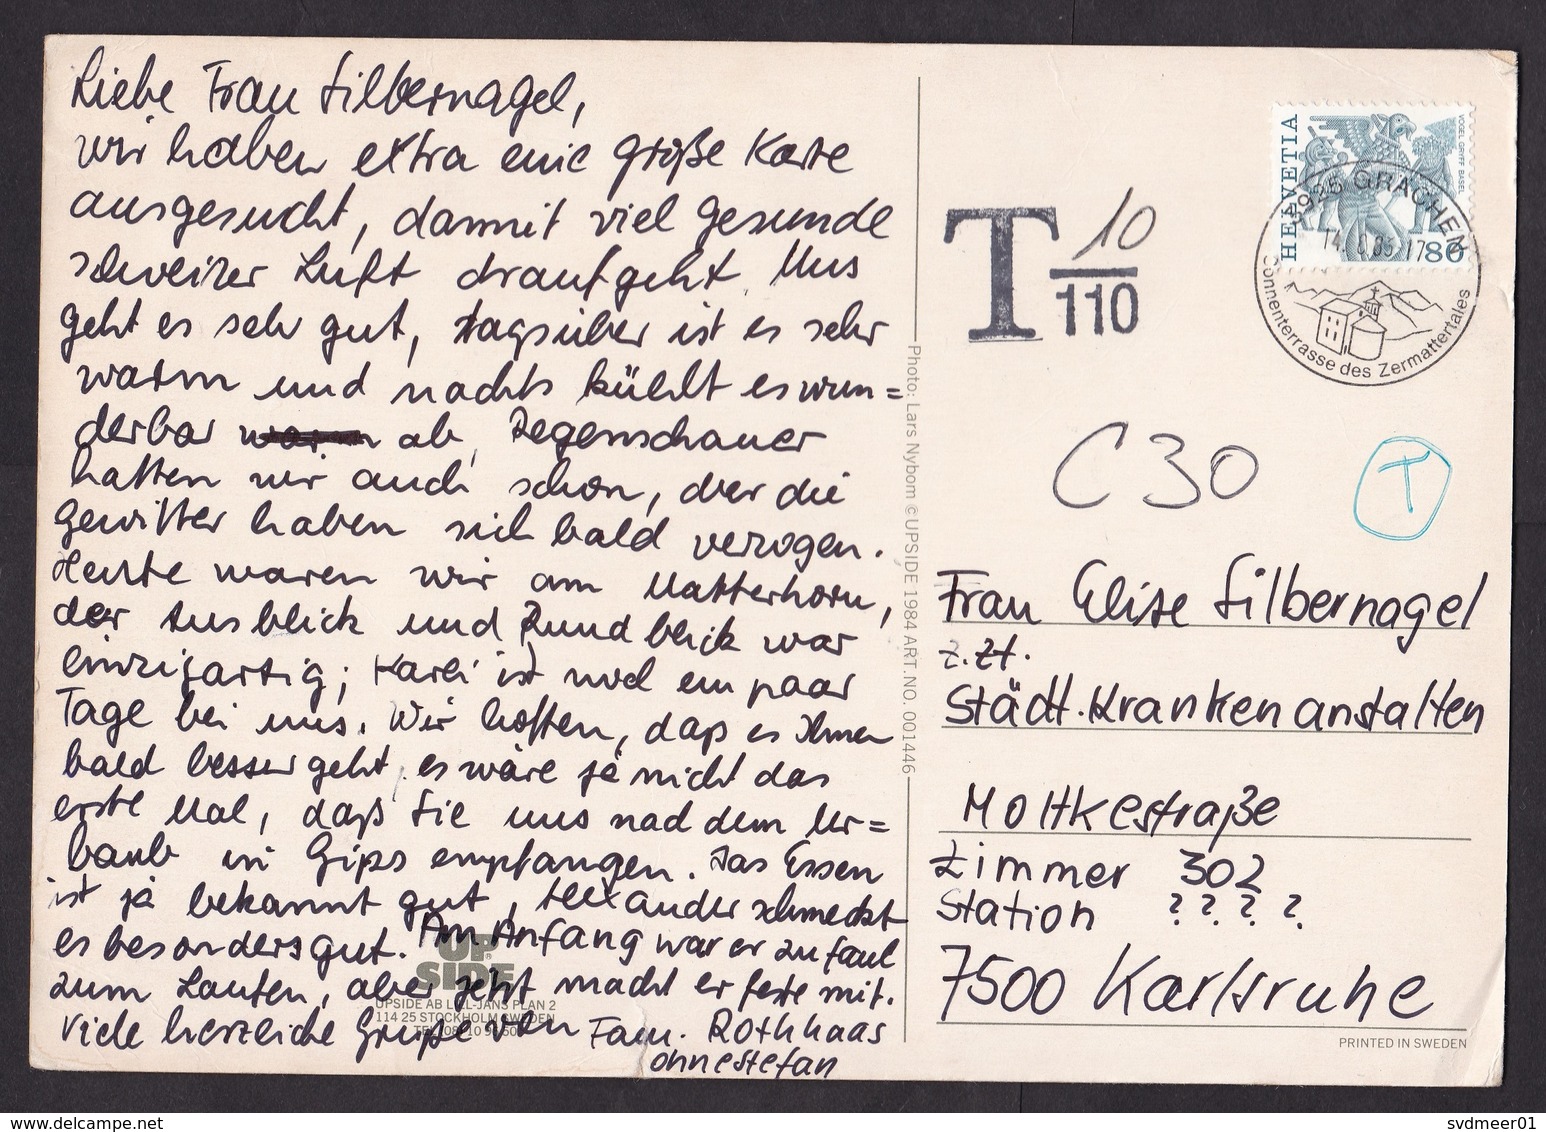 Liebe Frau Silbernagel,
wir haben extra eine große Karte
ausgesucht, damit viel gesunde
schweizer Luft draufgeht. Uns
geht es sehr gut, tagsüber ist es sehr
warm und nachts kühlt es wun=
derbar ab, Regenschauer
hatten wir auch schon, aber die
Gewitter haben sich bald verzogen.
Heute waren wir am Matterhorn,
der Ausblick und Rundblick war
einzigartig; Karli ist noch ein paar
Tage bei uns. Wir hoffen, daß es Ihnen
bald besser geht, es wäre ja nicht das
erste Mal, daß Sie uns nach dem Ur=
laub in Gips empfangen. Das Essen
ist ja bekannt gut, Alexander schmeckt
es besonders gut. Am Anfang war er zu faul
zum Laufen, aber jetzt macht er feste mit.
Viele herzliche Grüße von Fam. Rothhaas
ohne Stefan
UP
SIDE
UPSIDE AB LILL-JANS PLAN 2
114 25 STOCKHOLM SWEDEN
Photo: Lars Nybom © UPSIDE 1984 ART.NO. 001446
HELVETIA
VOGEL GRYFF BASEL
80
3925 GRÄCHEN
Sonnenterrasse des Zermattertales
T 10
110
C 30
T
Frau Elise Silbernagel
z.Zt.
Städt. Krankenanstalten
Moltkestraße
Zimmer 302
Station ? ? ? ?
7500 Karlsruhe
PRINTED IN SWEDEN
www.delcampe.net
svdmeer01